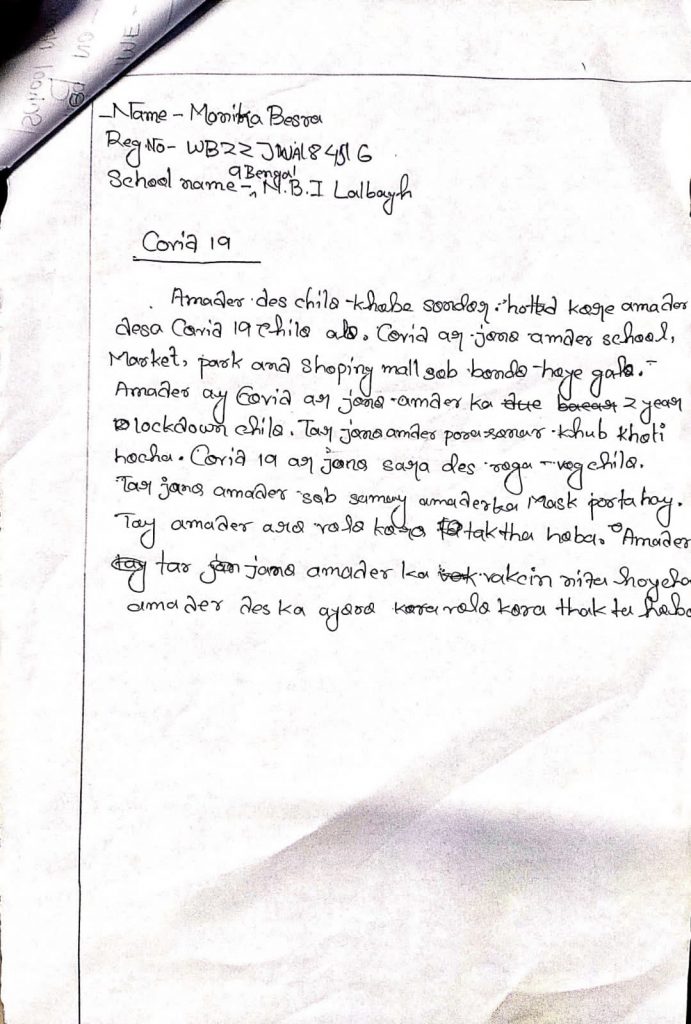 Name - Monika Besra
Reg No - WB22JWAL8451G
School name - 9 Bengal N.B.I Lalbagh
Covid 19
Amader des chilo khube sondor. hottad kore amader
desa Covid 19 Chilo alo. Covid ar jono amder school,
Market, park and Shoping mall sob bondo hoye galo.
Amader ay Covid ar jono amder ka 2 year
lockdown chilo. Tar jono amder porasonar khub khoti
hocha. Covid 19 ar jono sara des roga - vog chilo.
Tar jono amader sob samay amaderka Mask porta hoy.
Tay amader aro valo kora taktha hoba. Amader
tar jono amader ka vakcin nita hoyecha
amader des ka ayaro valo kora thak ta hoba